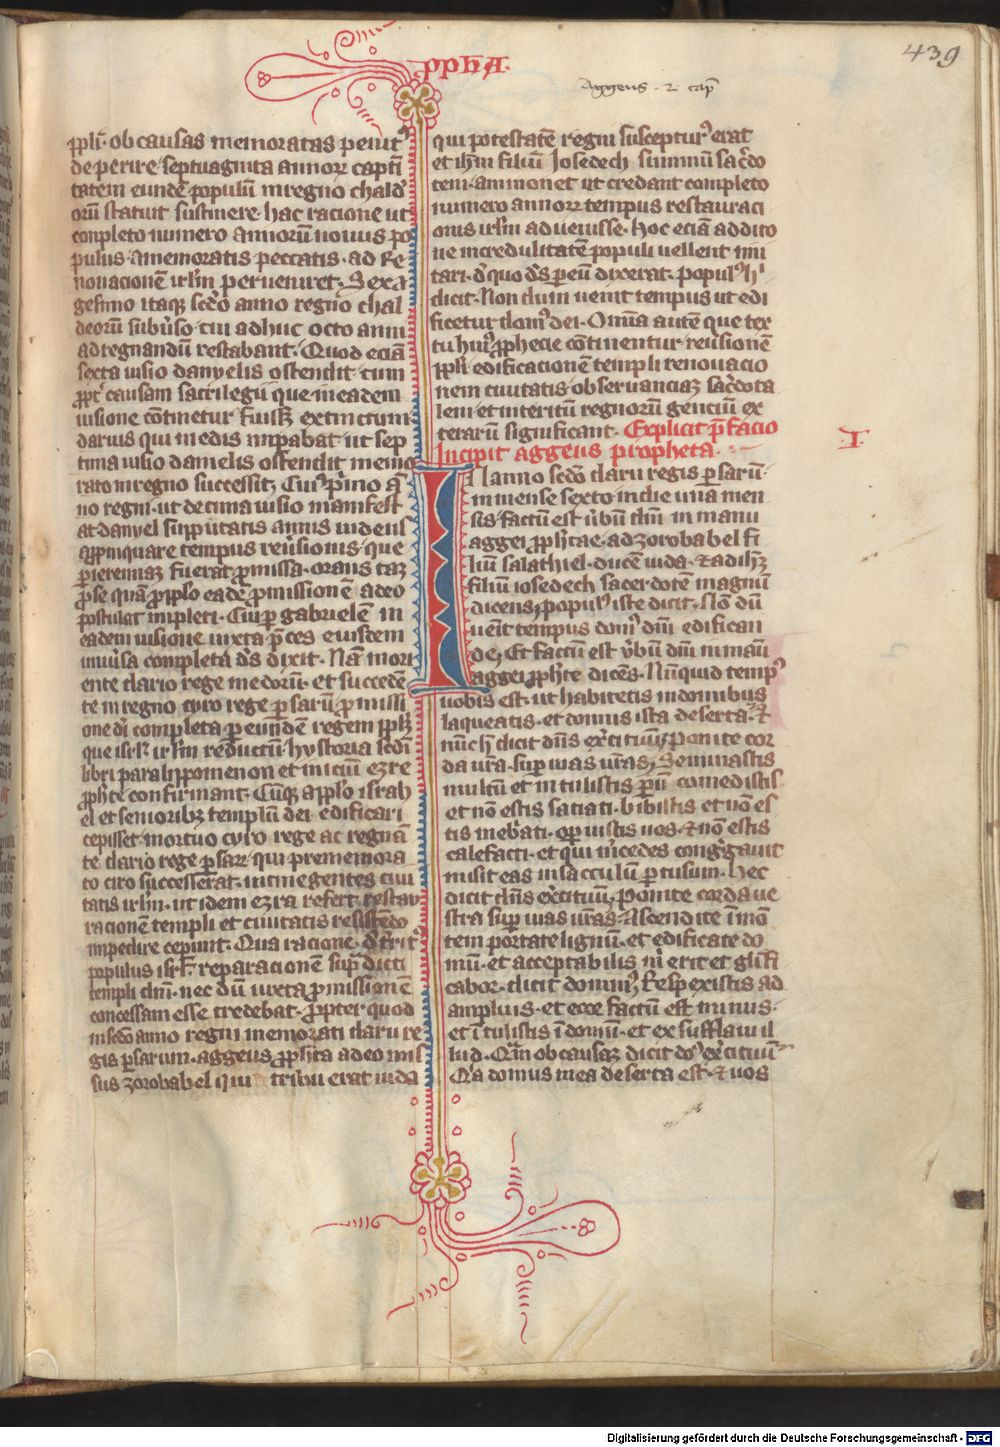 PPHA.
Aggeus · 2 cap
439
ppl̄i · ob causas memoratas penit᷒
deperire · septuaginta annorꝝ capti
tatem eundē populum in regno chald
orū statuit sustinere · hac racione ut
completo numero annorū nouus po
pulus amemoratis peccatis · ad re
nouacionem irl̄m perueniret · Sexa
gesimo itaqꝫ scd̄o anno regno chal
deorū subuerso · cui adhuc octo anni
ad regnandū restabant · Quod eciā
sexta uisio danyelis ostendit cum
ppt̄ causam sacrilegii que in eadem
uisione cōtinetur fuisse extinctum
darius qui in edis impabat · ut sep
tima uisio danielis ostendit memo
rato in regno successit · Cui᷒ p̄mo ā
no regni · ut decima uisio manifest
at danyel supputatis annis uidens
appinquare tempus reuisionis · que
p ieremiaꝫ fuerat pmissa · orans taꝫ
pse quā pp̄lo eadē pmissionē adeo
postulat impleri · Cui p gabrielem in
eadem uisione iuxta p̄ces eiusdem
uniūsa completa dn̄s dixit · Nā mori
ente dario rege medorū · et succeden
te in regno cyro rege p̱sarū pmissi
one dī completa p eundem regem pp̄lꝫ
que isrl̄ irl̄m reductū · hystoria scd̄i
libri paralippomenon et iniciū ezre
pph̄te confirmant · Cūqꝫ a pp̄lo israh
el et senioribꝫ templū dei edificari
cepisset · mortuo cyro rege ac regnā
te dario rege p̱sarꝝ · qui prememora
to ciro successerat · uicine gentes ciui
tatis irl̄m · ut idem ezra refert · restau
racionē templi et ciuitatis resistēdo
impedire cepiunt · Qua racione
populus isrl̄ reparacionē sup̄dicti
templi dn̄i · nec dū iuxta pmissionē
concessam esse credebat · propter quod
in scd̄o anno regni memorati darii re
gis p̱sarum · aggeus pph̄ta adeo mis
sus zorobabel qui tribu erat iuda
qui potestatē regni suscepturꝰ erat
et ih̄m filiū Iosedech summū sac̄do
tem · ammonet ut credant completo
numero annorꝝ tempus restauraci
onis irl̄m aduenisse · hoc eciā addito
ne incredulitatē populi uellent imi
tari · de quo dn̄s p eū dixerat · populꝰ h
dicit · Non dum uenit tempus ut edi
ficetur domꝰ dei · Om̄ia autē que tex
tu huiꝰ pphecie cōtinentur reuisionē
pp̄li edificacionē templi renouacio
nem ciuitatis obseruanciaꝫ sac̄dota
lem · et interitū regnorū genciū ex
terarū significant · Explicit p̄facio
Incipit aggeus propheta ·
I
IN anno scd̄o darii regis p̱sarū ·
in mense sexto · in die una men
sis · factū est ūbū dn̄i in manu
aggei pph̄tae · ad zorobabel fi
lium salathiel · ducē iuda · et ad ih̄m
filiū iosedech sacerdotē magnū
dicens · populꝰ iste dicit · Nō dū
uēit tempus domꝰ dn̄i edifican
de · Et factū est ūbū dn̄i in manū
aggei pph̄te dicēs · Nūquid tempꝰ
uobis est · ut habitetis in domibus
laqueatis · et domus ista deserta · Et
nūc h̄ dicit dn̄s ex̄cituū · Ponite cor
da ūra · sup uias ūras · Seminastis
multū et intulistis parū · comedistis
et non estis satiati · bibistis et non es
tis inebriati · operuistis uos · et nō estis
calefacti · et qui m̄cedes cong̊gauit
misit eas in sacculū p̱tusum · hec
dicit dn̄s ex̄cituū · Ponite corda ue
stra sup uias ūras · Ascendite ī mō
tem portate lignū · et edificate do
mū · et acceptabilis m̄ erit et gl̄ifi
cabor · dicit dominꝰ · Respexistis ad
amplius · et ecce factū est minus ·
et ī tulistis ī domū · et exsufflaui il
lud · Quā ob causaꝫ dicit dn̄s ex̄cituū
Q̄a domus mea deserta est · et uos
Digitalisierung gefördert durch die Deutsche Forschungsgemeinschaft - DFG